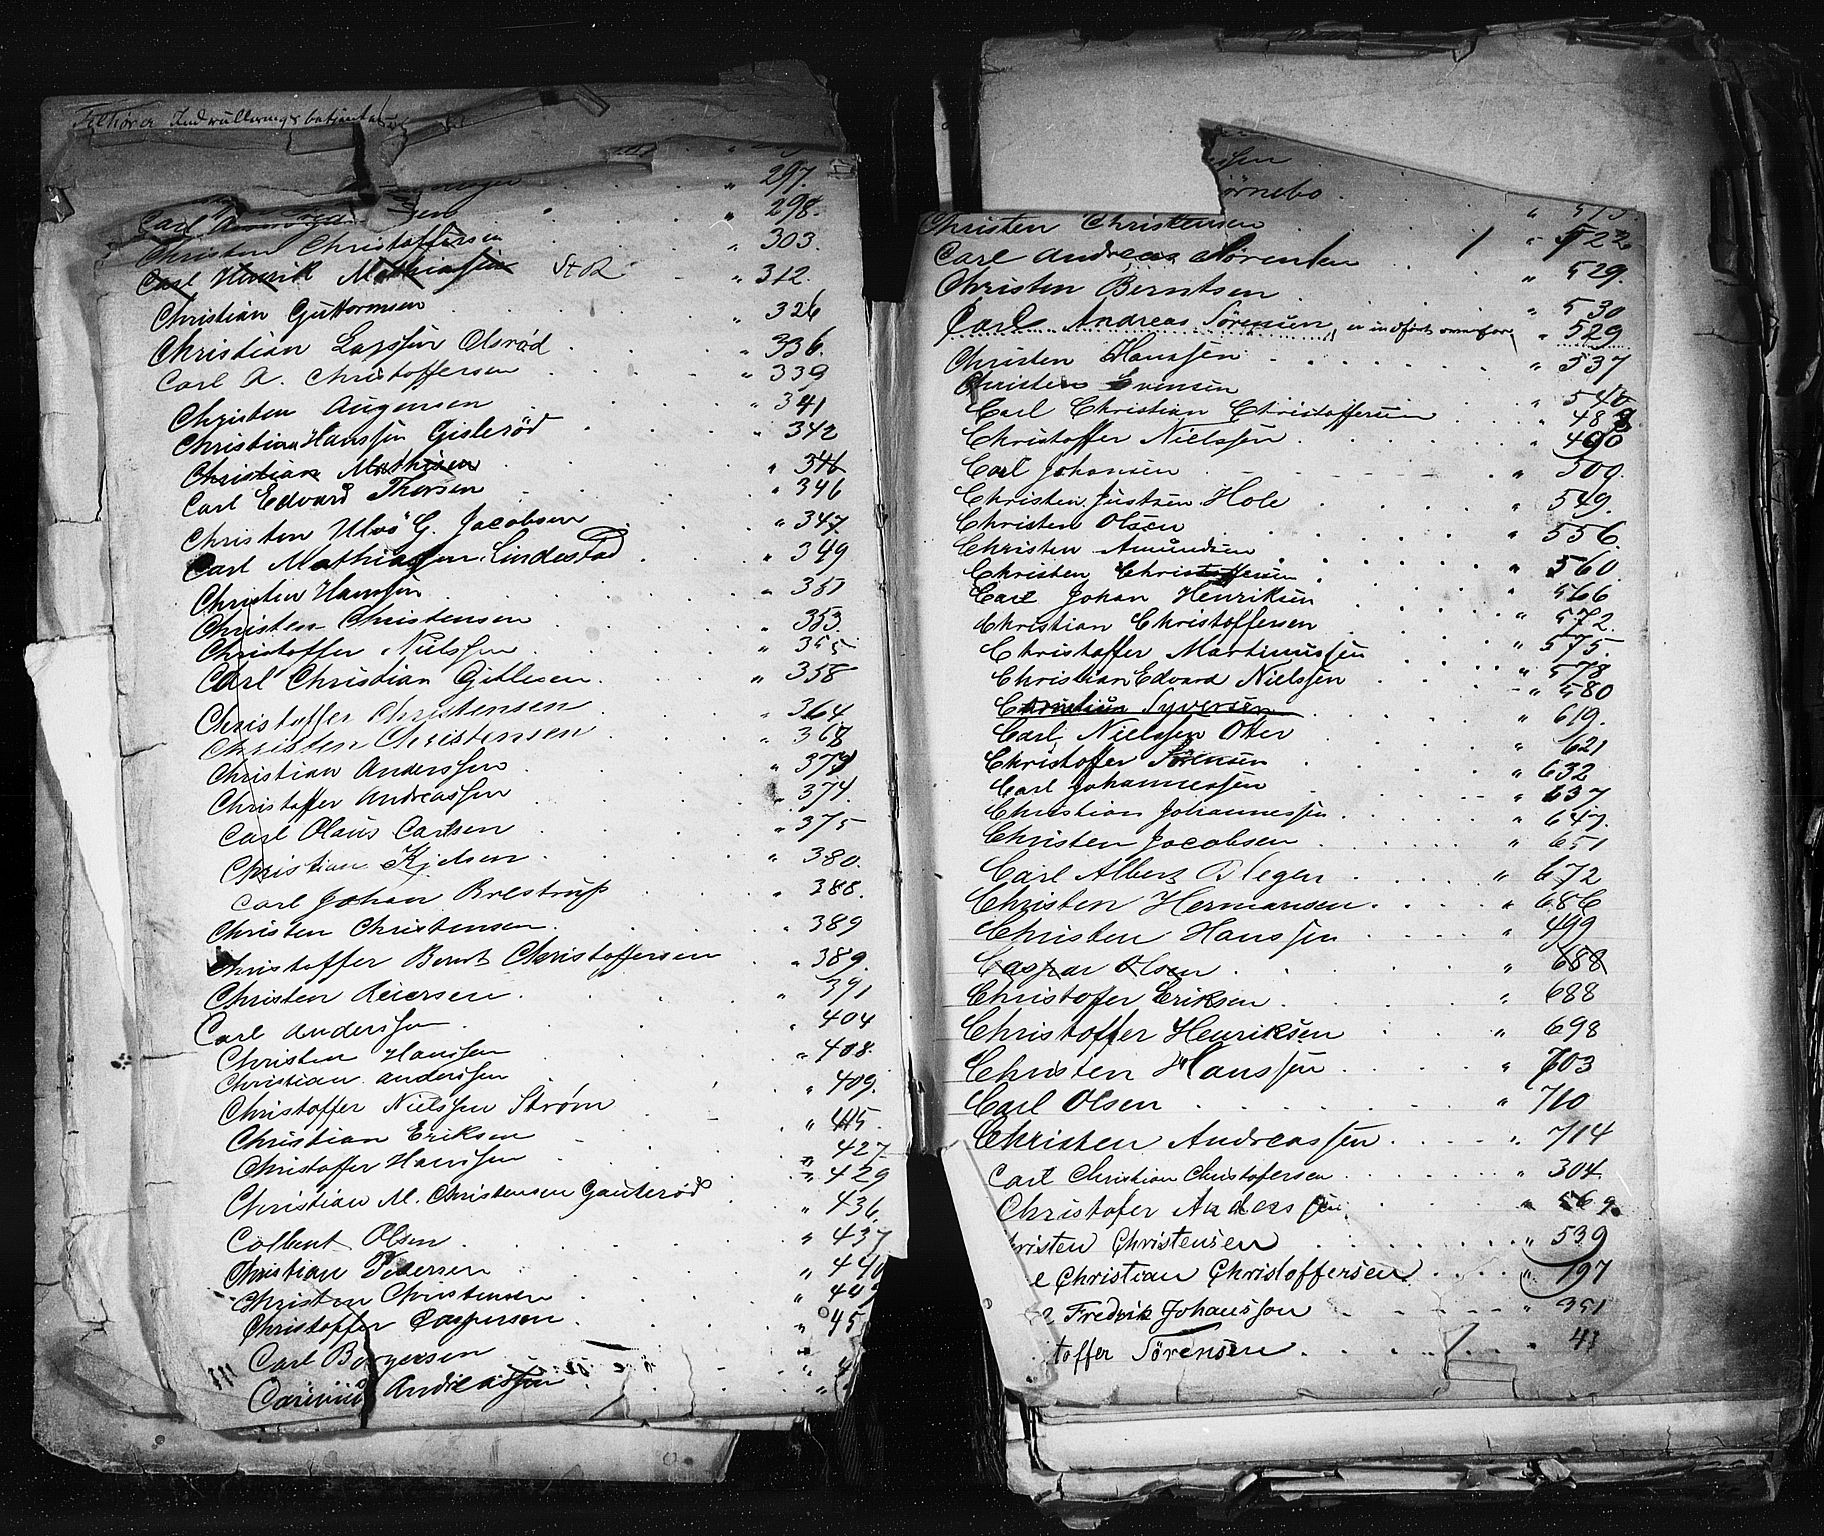 Tilhører Indrulleringsbetjenten
" 297.
" 298.
Christen Christoffersen " 303.
Carl Henrik Mathiasen " 312.
Christian Guttormsen " 326
Christian Larssen Olsrød " 336.
Carl A. Christoffersen " 339
Christen Augensen " 341
Christian Hanssen Gislerød " 342
Christian Mathisen " 346
Carl Edvard Thorsen " 346
Christen Ulvø G. Jacobsen " 347.
Carl Mathiassen Lindestad " 349
Christen Hanssen " 351
Christen Christensen " 353.
Christoffer Nielssen " 355
Carl Christian Gitlesen " 358
Christoffer Christensen " 364
Christen Christensen " 368
Christian Anderssen " 373
Christoffer Andreassen " 374.
Carl Olaus Carlsen " 375
Christian Kjelsen " 380.
Carl Johan Brestrup " 388.
Christen Christensen " 389
Christoffer Bernt Christoffersen " 389.
Christen Reiersen " 391
Carl Anderssen " 404
Christen Hanssen " 408.
Christian Anderssen " 409.
Christoffer Nielssen Strøm " 415.
Christian Eriksen " 427
Christoffer Hanssen " 429
Christian M. Christensen Gauterød " 436.
Colbent Olsen " 437
Christian Pedersen " 440
Christen Christensen " 44
Christoffer Caspersen " 45
Carl Børgersen "
Andreassen " 4
ssen
ørnebo
Christen Christensen " 522
Carl Andreas Sørensen " 529.
Christen Berntsen " 530
Carl Andreas Sørensen, er indført ovenfor " 529
Christen Hanssen " 537
Christen Evensen " 540
Carl Christian Christoffersen " 488
Christoffer Nielssen " 490
Carl Johansen " 509.
Christen Justsen Hole " 549.
Christen Olsen " 556.
Christen Amundsen " 560.
Christen Christoffersen " 566
Carl Johan Henriksen " 572.
Christian Christoffersen " 575.
Christoffer Martinussen " 578
Christian Edvard Nielssen " 580
Christian Syversen " 619.
Carl Nielssen Oter " 621
Christoffer Sørensen " 632
Carl Johannessen " 637
Christian Johannessen " 647.
Christen Jacobsen " 651
Carl Albert Bleger " 672
Christen Hermansen " 686
Christen Hanssen " 499
Caspar Olsen " 688
Christoffer Eriksen " 688
Christoffer Henriksen " 698
Christen Hanssen " 703
Carl Olsen " 710
Christen Andreassen " 714
Carl Christian Christofersen " 304.
Christofer Anderssen " 569
risten Christensen " 539
Christian Christoffersen " 197
Fredrik Johansson " 351
toffer Tørensen " 41